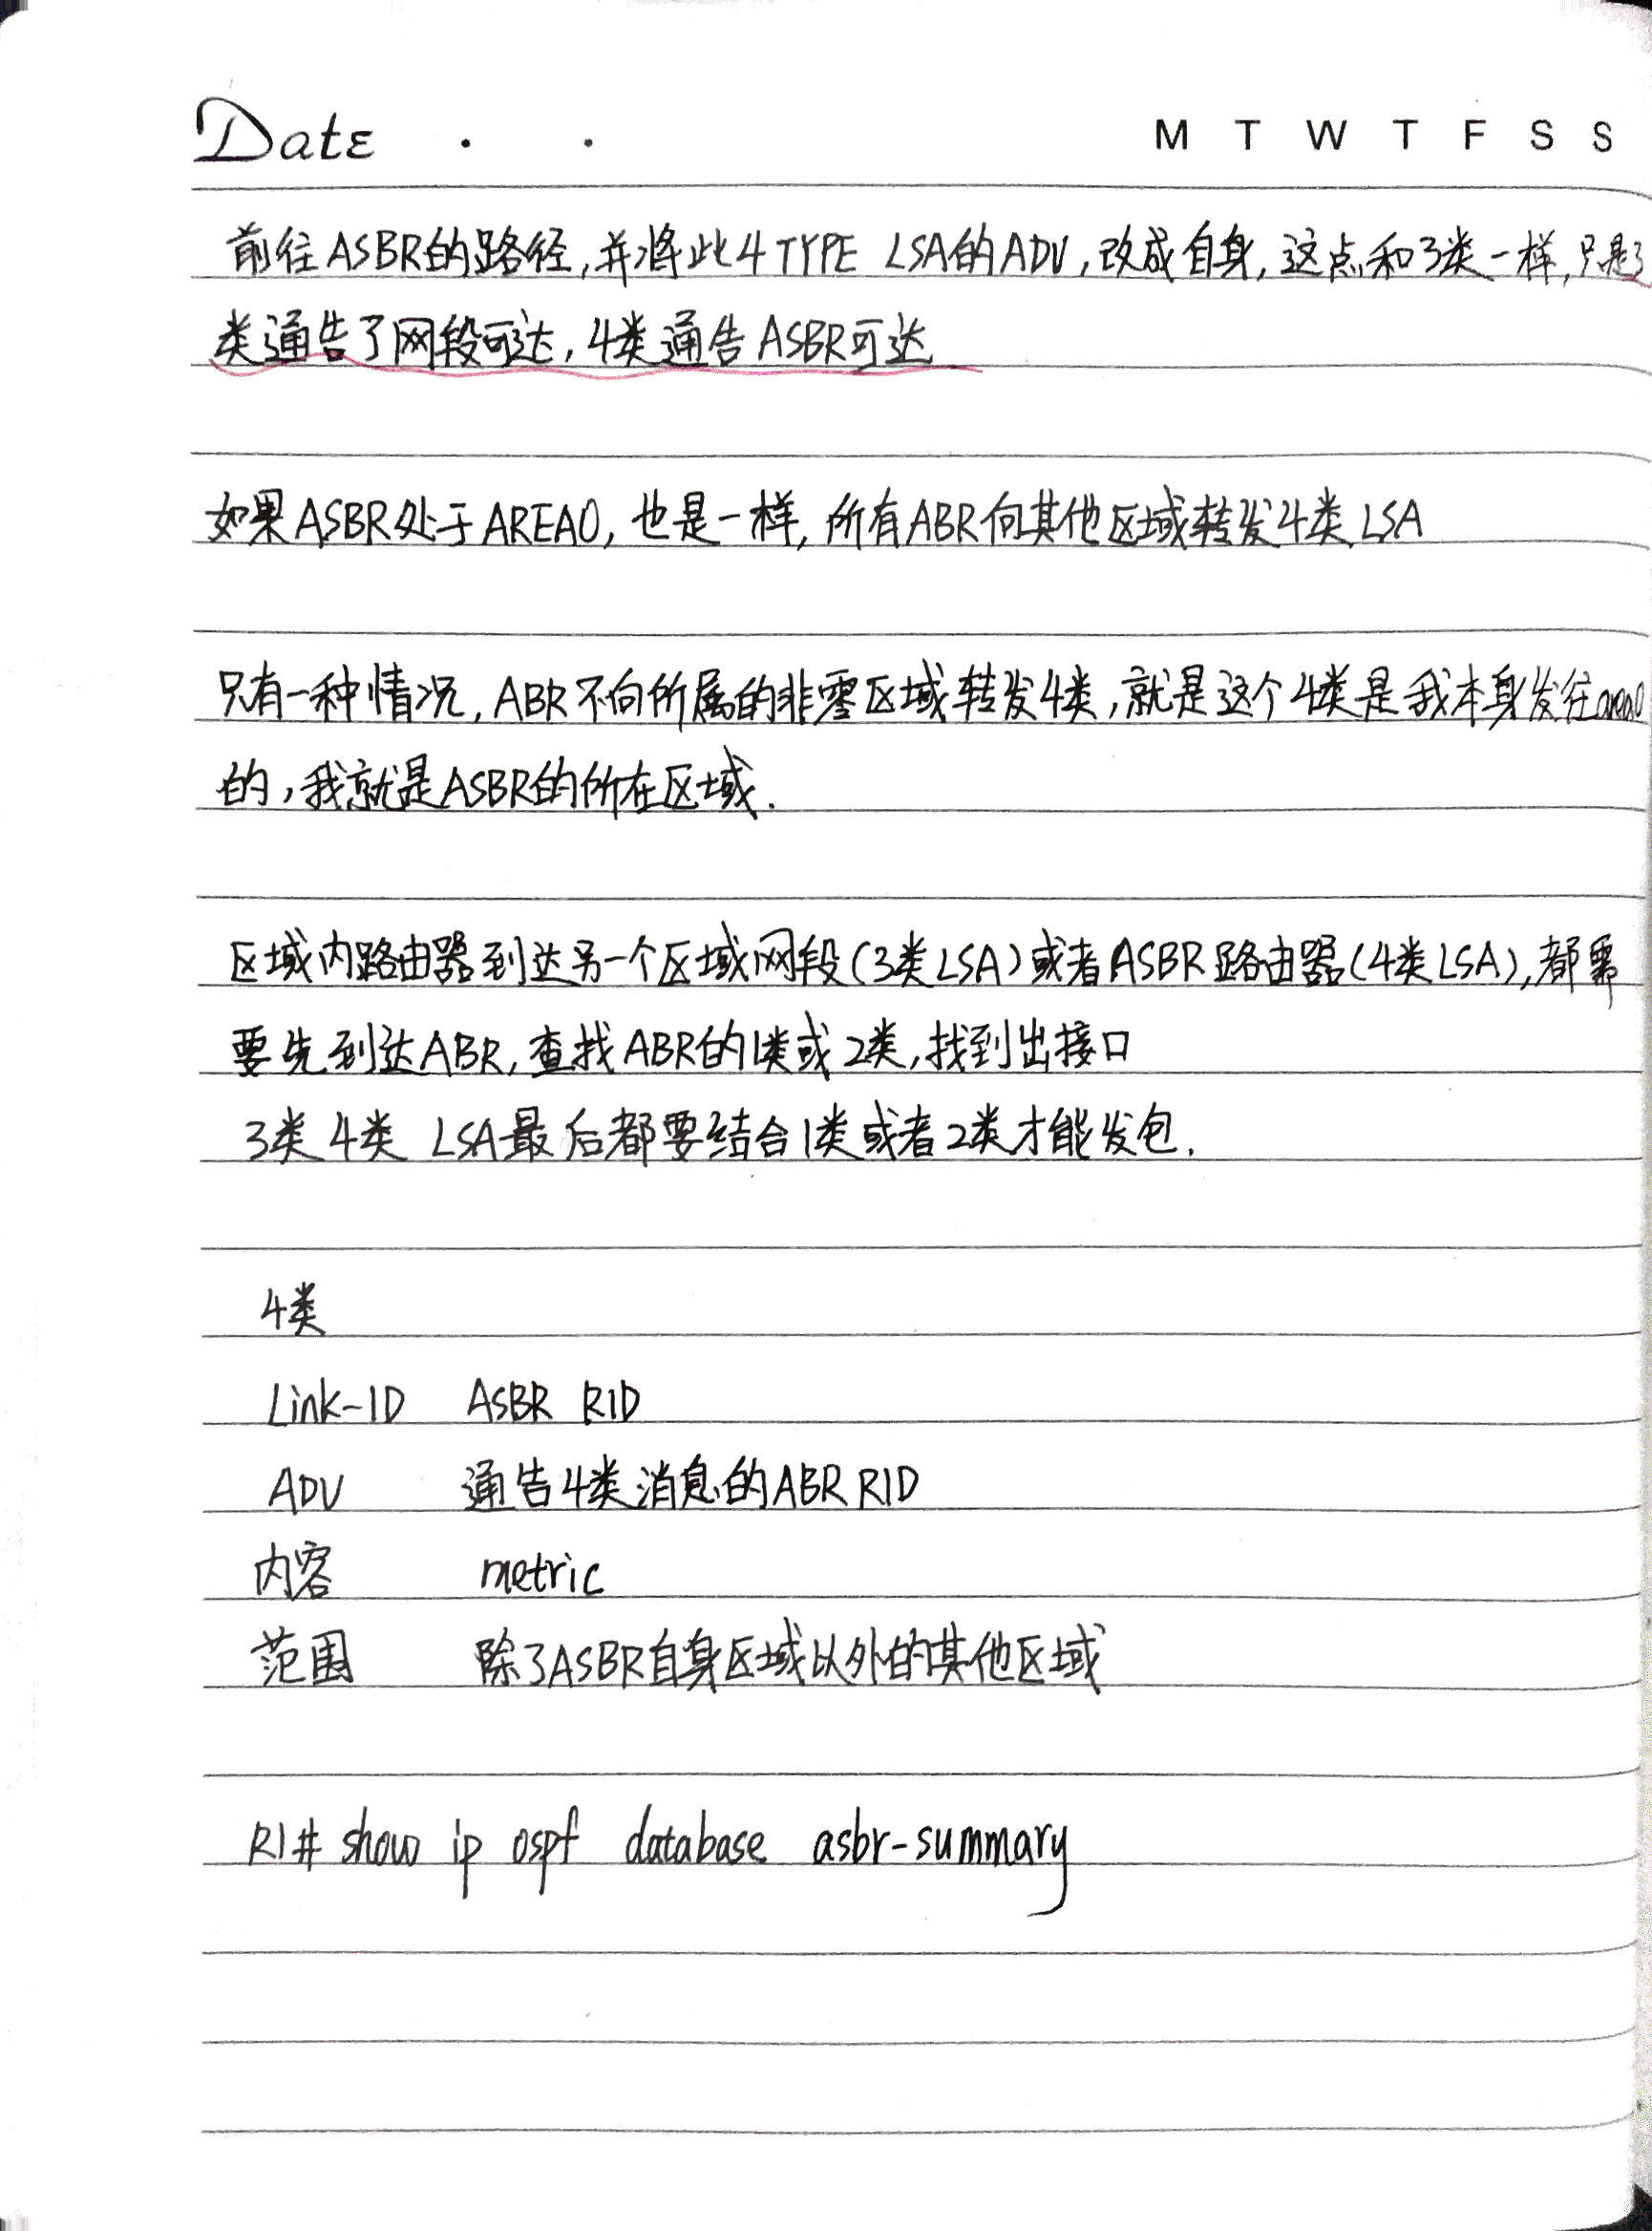 Date . . M T W T F S S
前往ASBR的路径,并将此4 TYPE LSA的ADV,改成自身,这点和3类一样,只是3
类通告了网段可达,4类通告ASBR可达
如果ASBR处于AREA0,也是一样,所有ABR向其他区域转发4类LSA
只有一种情况,ABR不向所属的非零区域转发4类,就是这个4类是我本身发往area0
的,我就是ASBR的所在区域.
区域内路由器到达另一个区域网段(3类LSA)或者ASBR路由器(4类LSA),都需
要先到达ABR,查找ABR的1类或2类,找到出接口
3类4类 LSA最后都要结合1类或者2类才能发包.
4类
Link-ID ASBR RID
ADV 通告4类消息的ABR RID
内容 metric
范围 除了ASBR自身区域以外的其他区域
R1# show ip ospf database asbr-summary